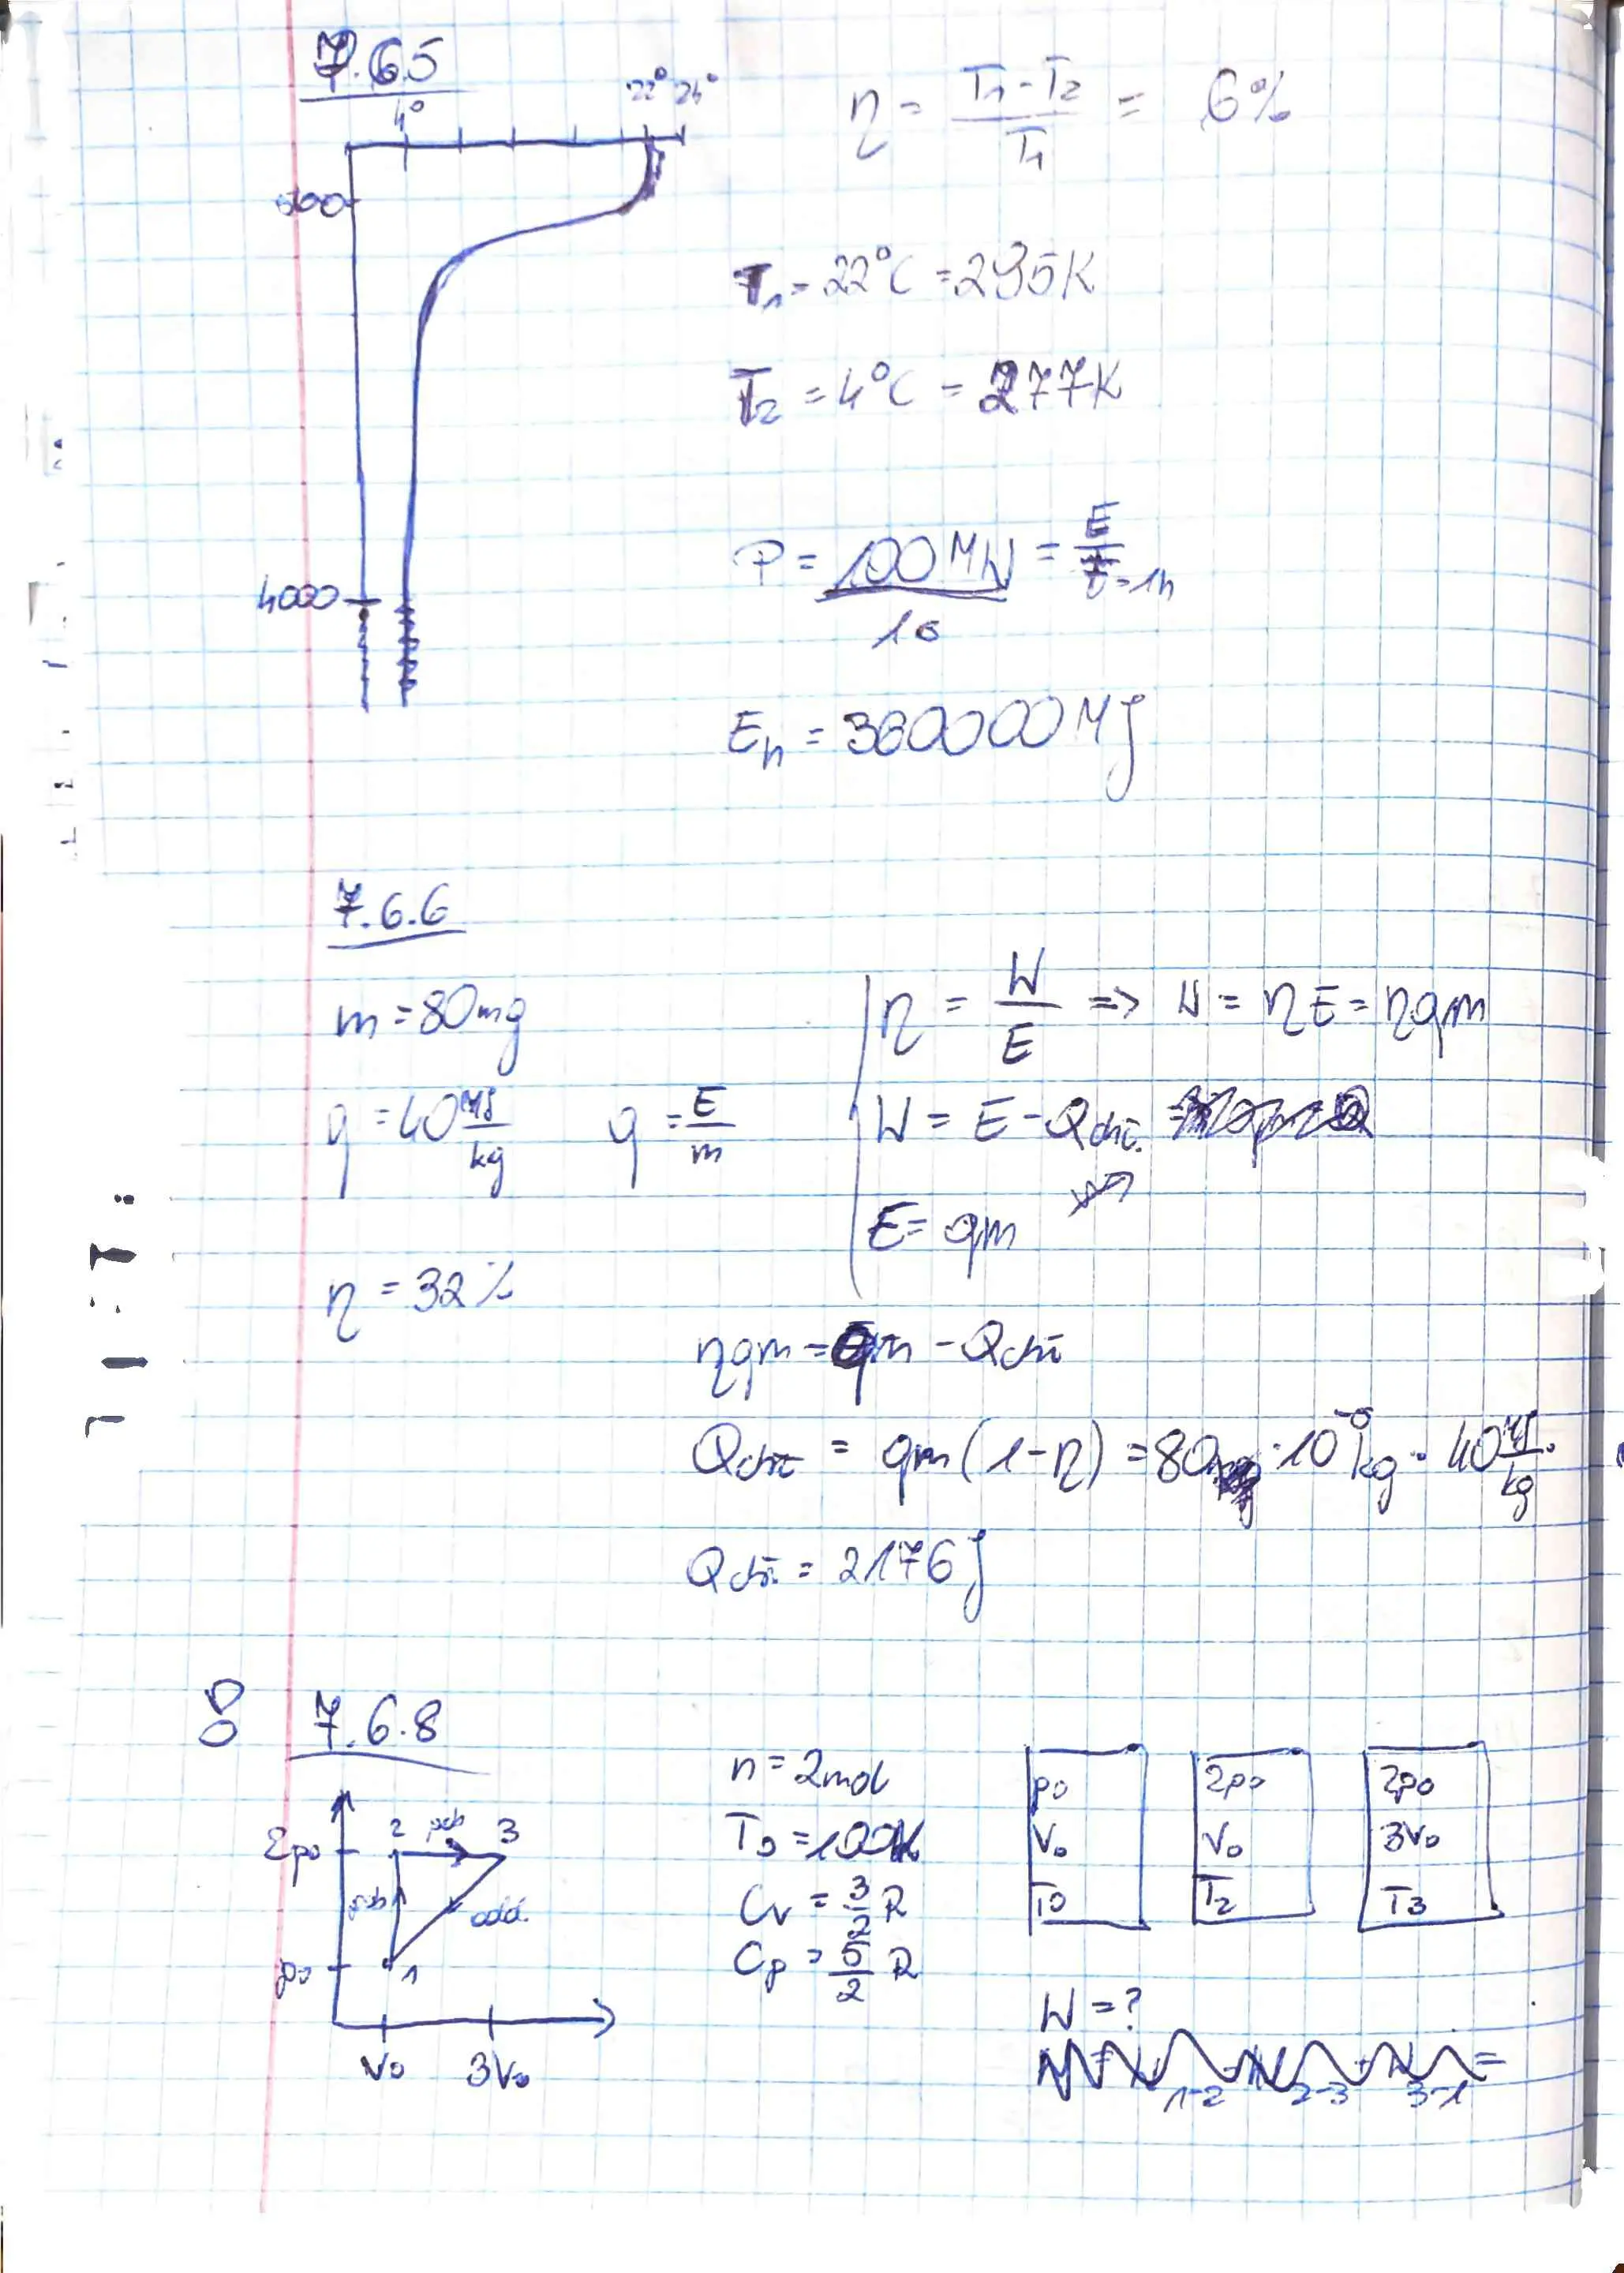 7.6.5
4° 22° 24°
500
4000
η = (T₁ - T₂)/T₁ = 6%
T₁ = 22°C = 295K
T₂ = 4°C = 277K
P = 100MW/1s = E/t t=1h
Eₕ = 360000MJ
7.6.6
m = 80mg
q = 40 MJ/kg q = E/m
η = 32%
η = W/E => W = ηE = ηqm
W = E - Qchł.
E = qm
ηqm = qm - Qchł
Qchł = qm(1-η) = 80 · 10⁻⁶ kg · 40 MJ/kg ·
Qchł. = 2176J
8 7.6.8
2p₀ 2 3
p₀ 1
V₀ 3V₀
n = 2mol
T₀ = 100K
Cv = 3/2 R
Cp = 5/2 R
p₀ 2p₀ 2p₀
V₀ V₀ 3V₀
T₀ T₂ T₃
W = ?
1-2 2-3 3-1 =